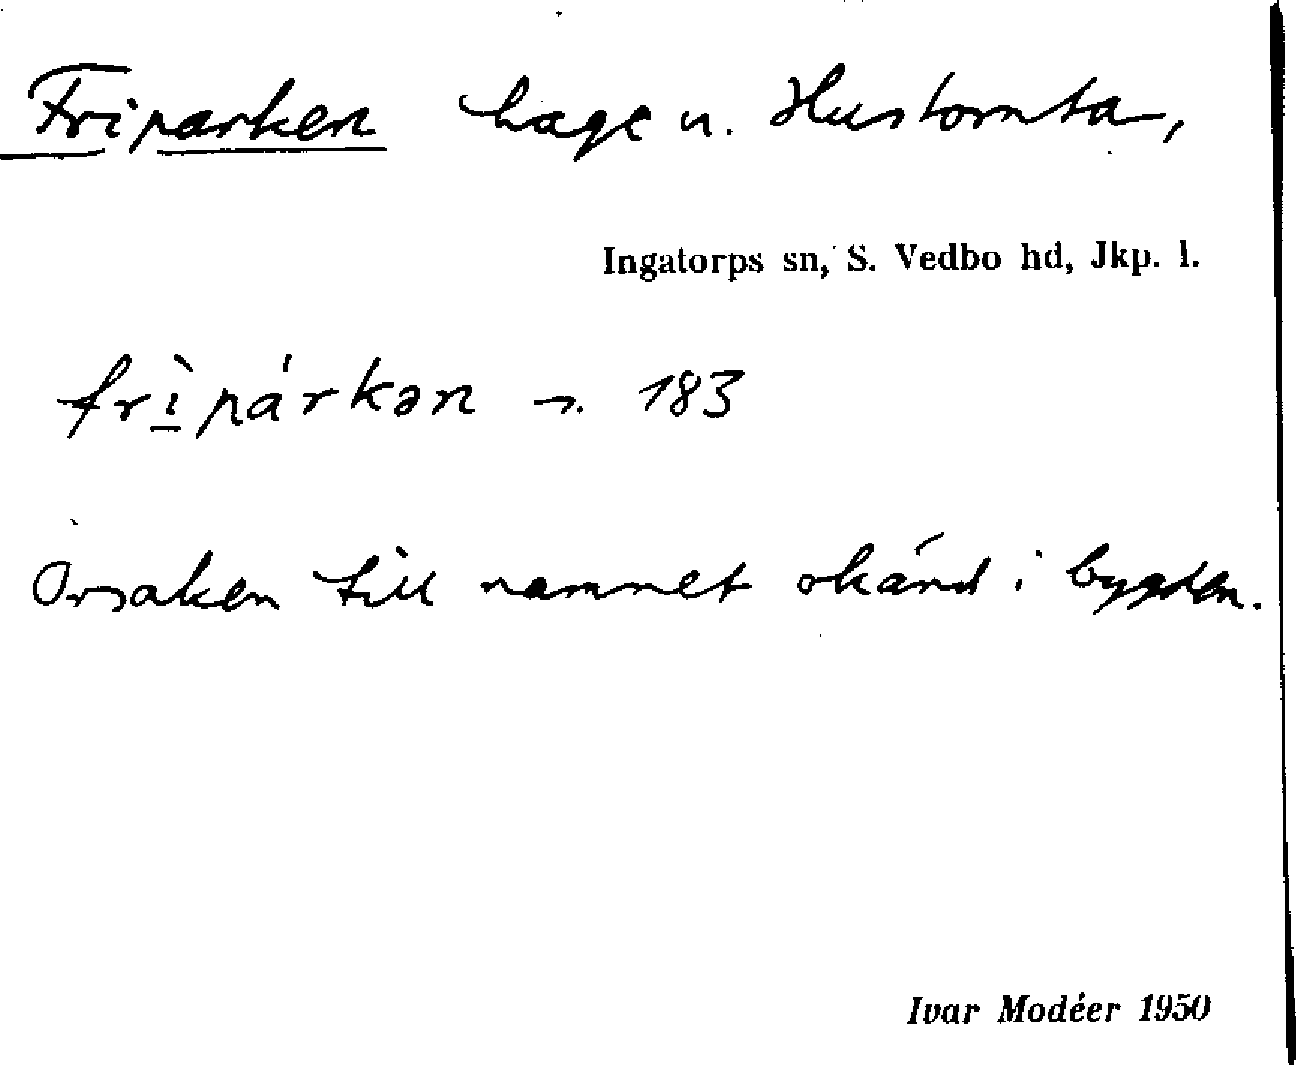 Friparken hage u. Hustomta,
Ingatorps sn, S. Vedbo hd, Jkp. l.
frì̲párkən 183
Orsaken till namnet okänd i bygden.
Ivar Modéer 1950